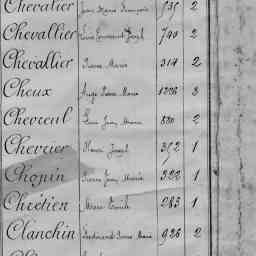 Chevalier Jean Marie François 535 2
Chevallier Louis Toussaint Joseph 740 2
Chevallier Pierre Marie 314 2
Cheux Ange Pierre Marie 1226 3
Chevreul Jean Marie 830 2
Chevrier Henri Joseph 352 1
Chopin Pierre Jean Marie 222 1
Chrétien Marie Emile 283 1
Clanchin Ferdinand Pierre Marie 926 2